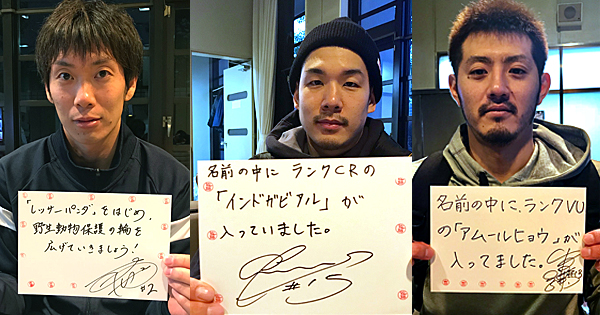 「レッサーパンダ」をはじめ、
野生動物保護の輪を
広げていきましょう!
#2
名前の中に ランクCRの
「インドガビアル」が
入っていました。
#15
名前の中に、ランクVU
の「アムールヒョウ」が
入ってました。
#13